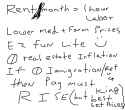 Rent/month = 1 hour
Labor
Lower med + Farm Prizes
E = fun Life ∪
① real estate Inflation
If ① Immigration/Ret
than Pay must
R I SE (but hiring
best best
settings)